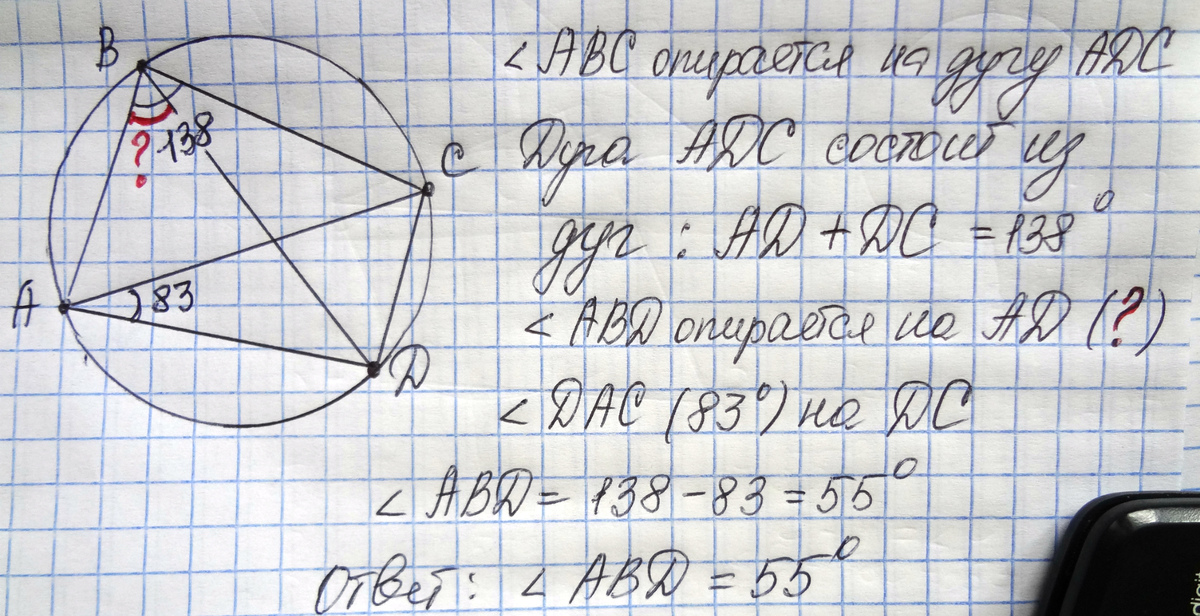 B
?
138
C
A
83
D
< ABC опирается на дугу ADC
Дуга ADC состоит из
дуг : AD + DC = 138°
< ABD опирается на AD (?)
< DAC (83°) на DC
< ABD = 138 - 83 = 55°
Ответ : < ABD = 55°